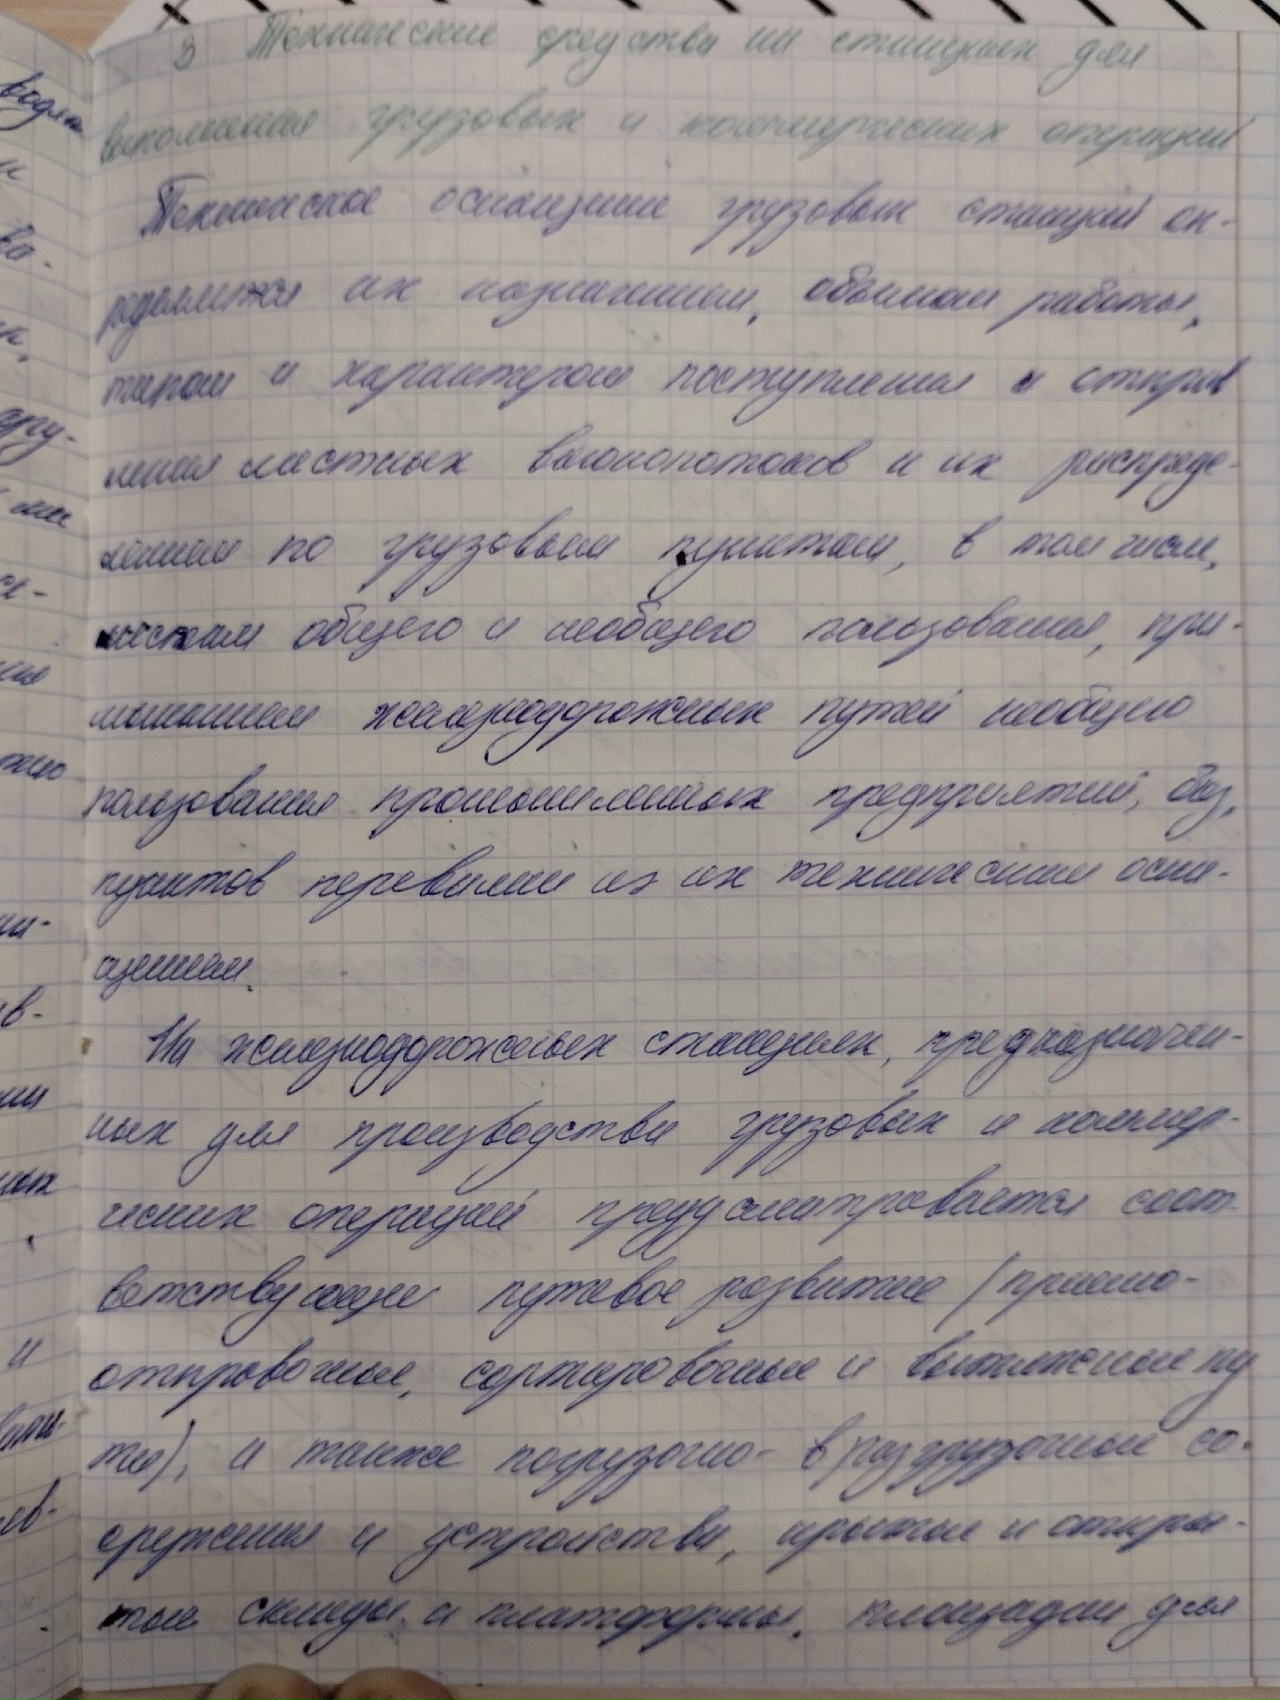 3 Технические средства на станциях для
выполнения грузовых и коммерческих операций
Техническое оснащение грузовых станций оп-
ределяется их назначением, объемом работы,
типом и характером поступления и отправ
ления местных вагонопотоков и их распреде-
лением по грузовым пунктам, в том числе,
местам общего и необщего пользования, при-
мыканием железнодорожных путей необщего
пользования промышленных предприятий, баз,
пунктов перевалки из их техническим осна-
щением.
На железнодорожных станциях, предназначен-
ных для производства грузовых и коммер-
ческих операций предусматривается соот-
ветствующее путевое развитие (приемо-
отправочные, сортировочные и вытяжные пу
ти), а также погрузочно- выгрузочные со-
оружения и устройства, крытые и откры-
тые склады и платформы, площадки для